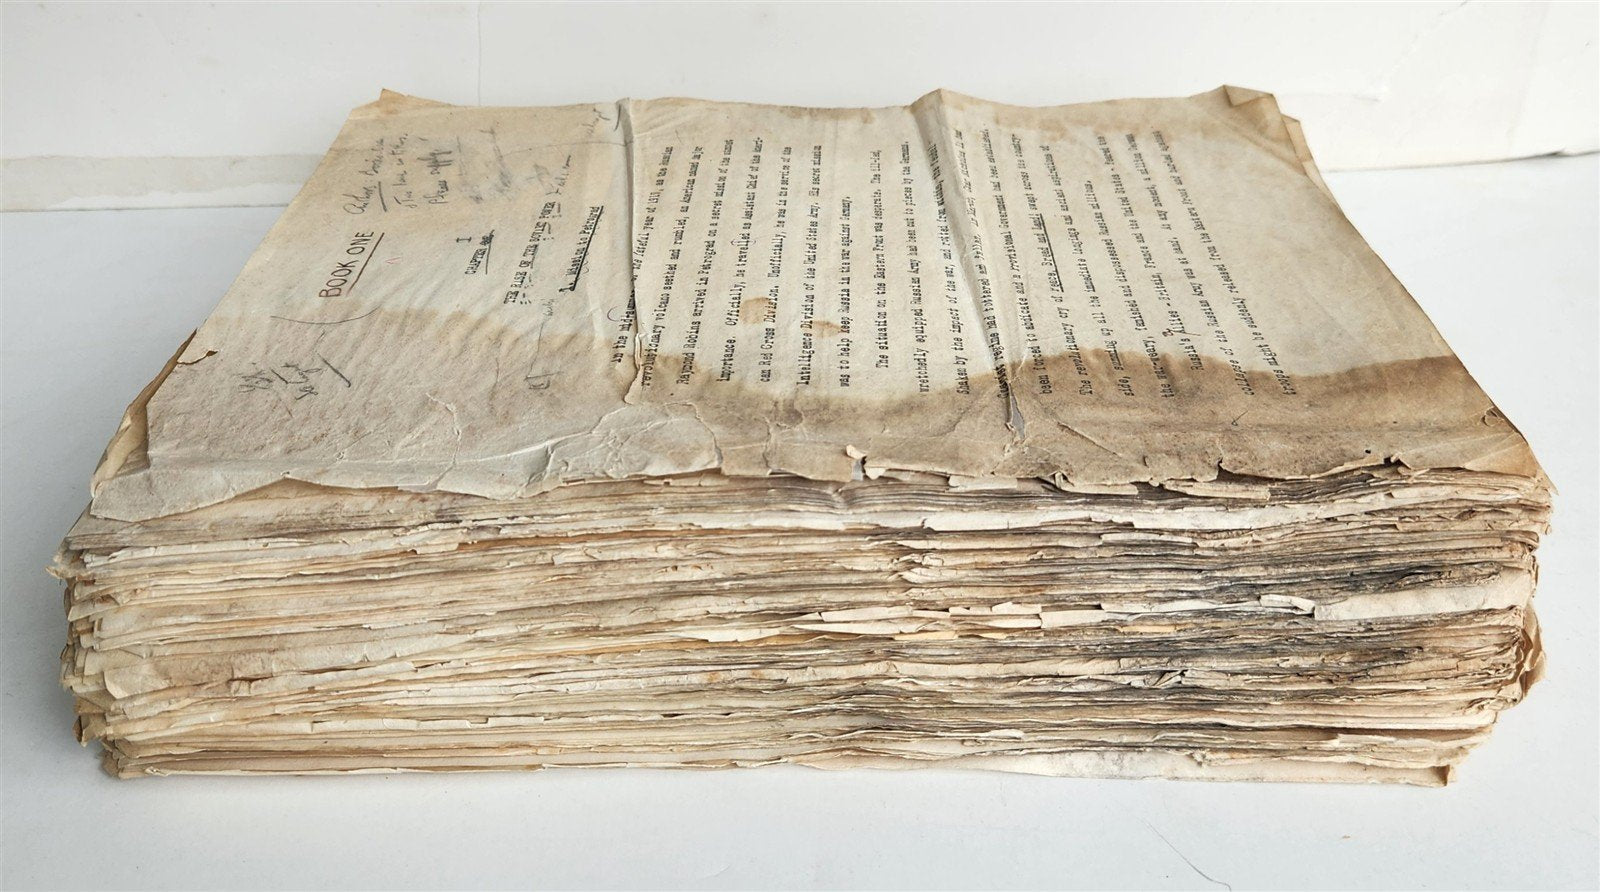 BOOK ONE
I
CHAPTER ONE
THE RISE OF THE SOVIET POWER
1. Mission to Petrograd
In the midsummer of the fateful year of 1917, as the Russian
revolutionary volcano seethed and rumbled, an American named Major
Raymond Robins arrived in Petrograd on a secret mission of the utmost
importance. Officially, he travelled as Assistant Chief of the Ameri-
can Red Cross Division. Unofficially, he was in the service of the
Intelligence Division of the United States Army. His secret mission
was to help keep Russia in the war against Germany.
The situation on the Eastern Front was desperate. The ill-led,
wretchedly equipped Russian Army had been cut to pieces by the Germans.
Shaken by the impact of the war, and rotted from within, the feudal
Czarist regime had tottered and fallen. In March, Czar Nicholas II had
been forced to abdicate and a Provisional Government had been established.
The revolutionary cry of Peace, Bread and Land! swept across the country-
side, summing up all the immediate longings and ancient aspirations of
the war-weary, famished and dispossessed Russian millions.
Russia's Allies - Britain, France and the United States - feared the
collapse of the Russian Army was at hand. At any moment, a million German
troops might be suddenly released from the Eastern Front and hurled against